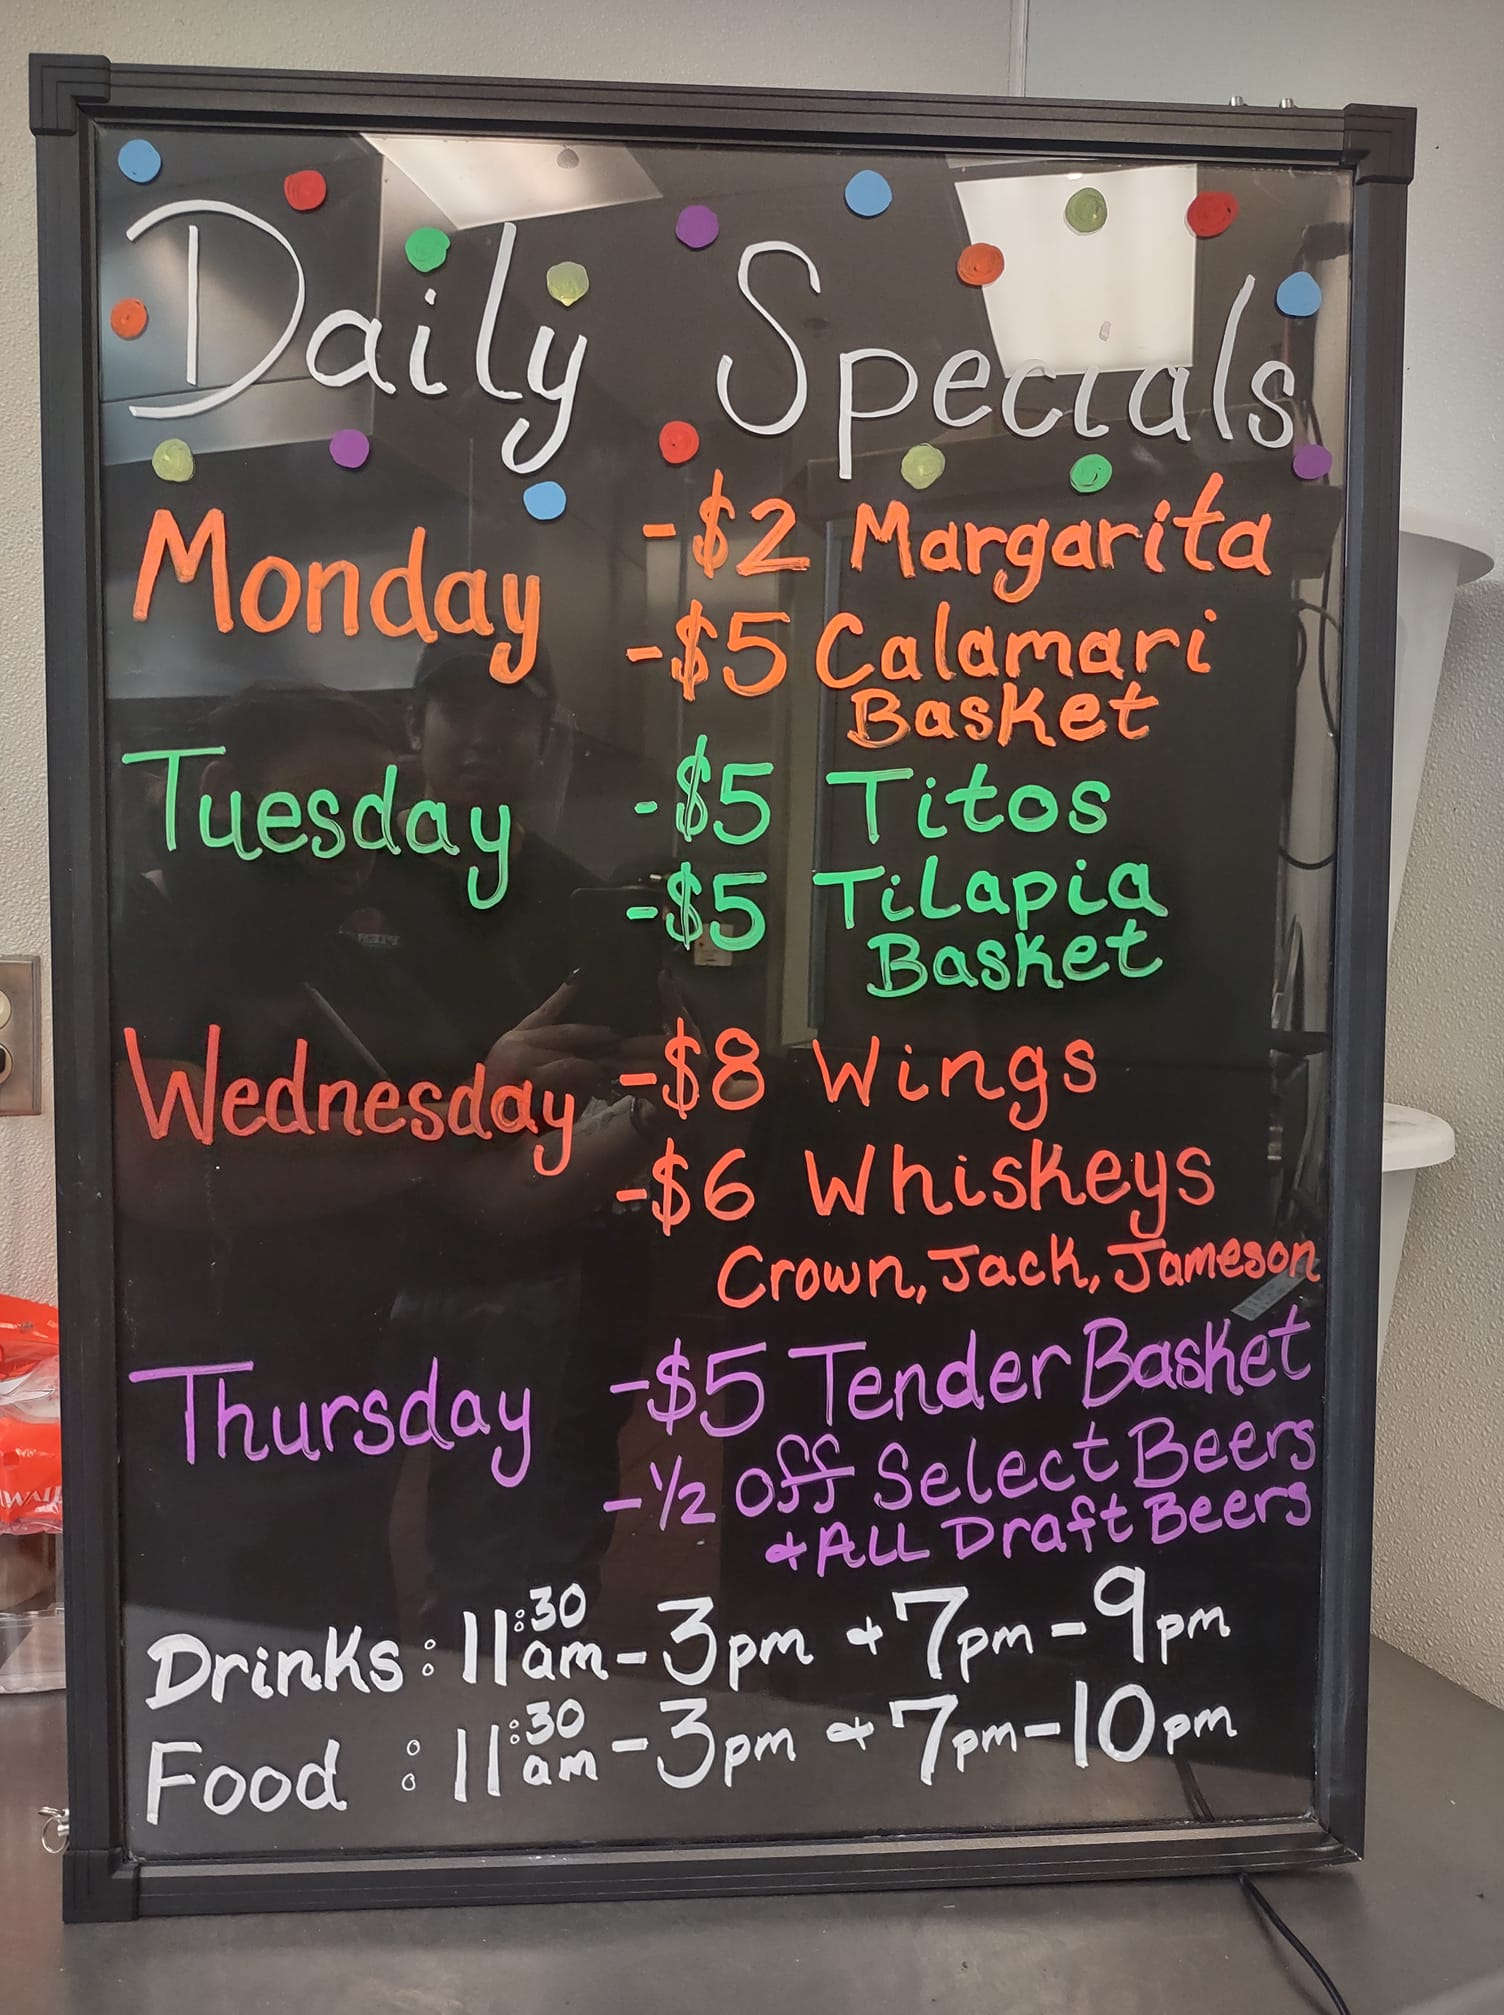 Daily Specials
Monday -$2 Margarita
-$5 Calamari
Basket
Tuesday -$5 Titos
-$5 Tilapia
Basket
Wednesday -$8 Wings
-$6 Whiskeys
Crown, Jack, Jameson
Thursday -$5 Tender Basket
-½ off Select Beers
+ ALL Draft Beers
Drinks: 11:30am-3pm + 7pm-9pm
Food: 11:30am-3pm + 7pm-10pm